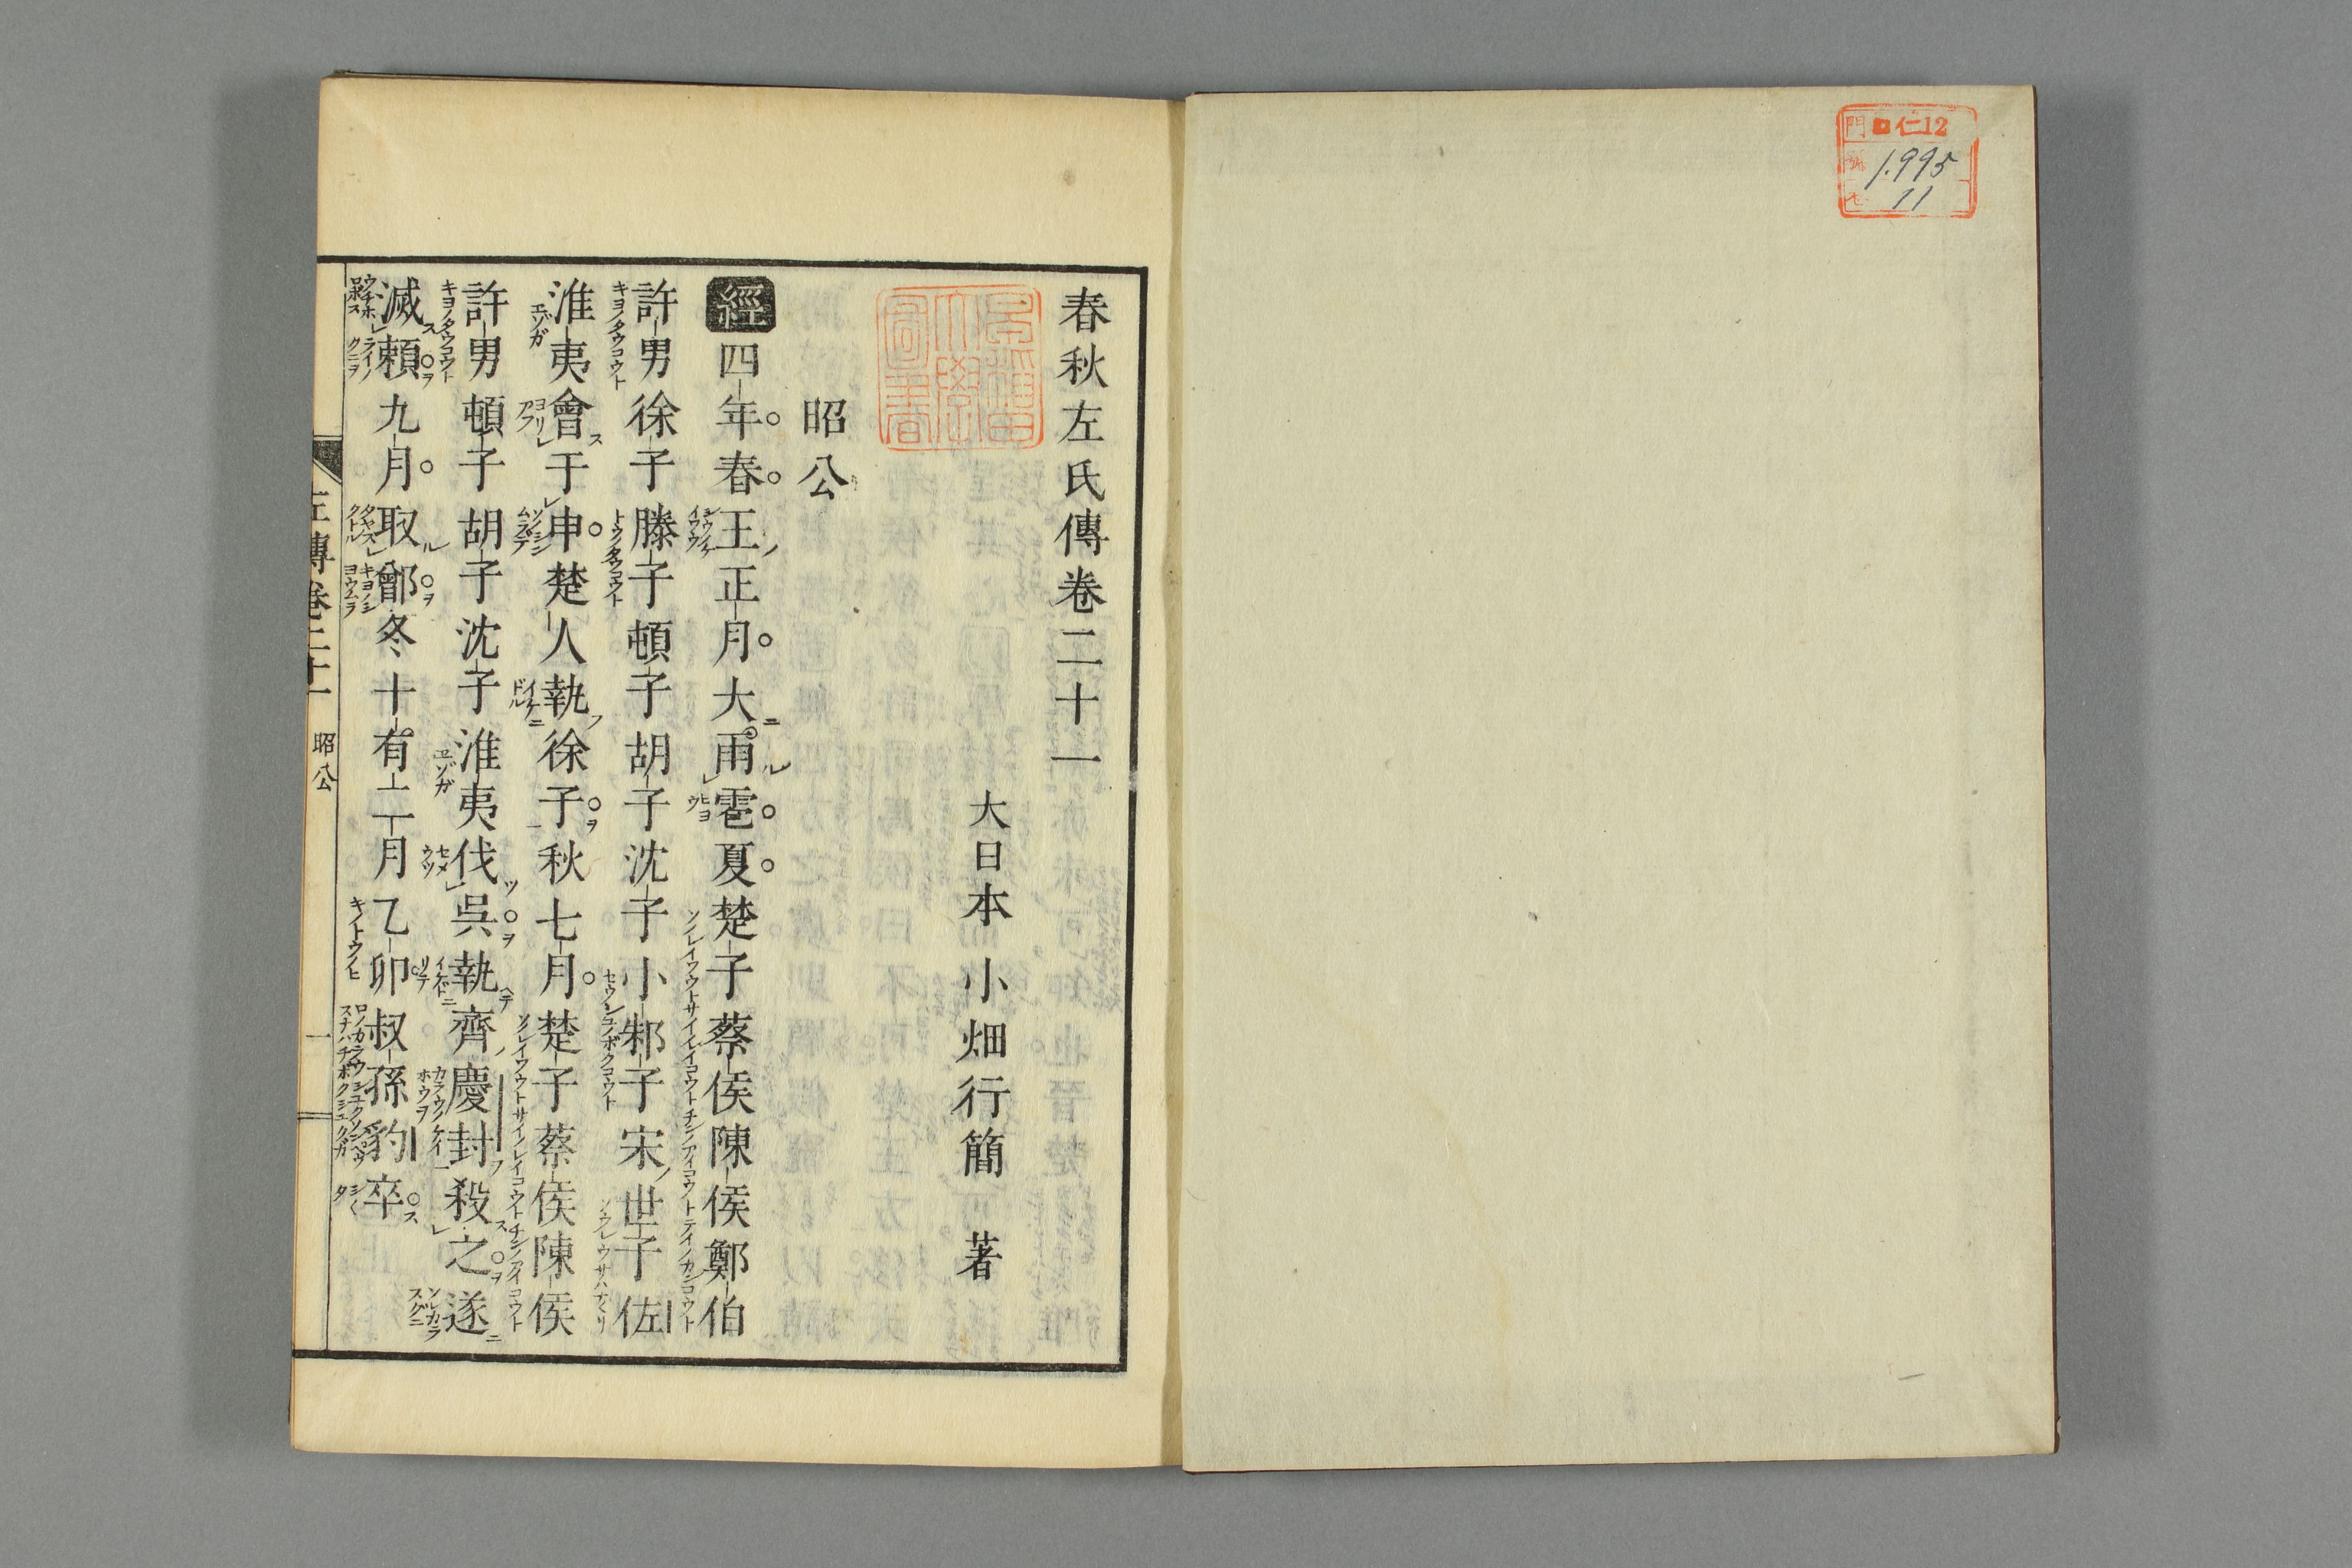 門 仁12
號 1.995
卷 11
春秋左氏傳卷二十一
大日本 小畑行簡 著
早稻田大學圖書
昭公
經四年春王正月大雨雹夏楚子蔡侯陳侯鄭伯
許男徐子滕子頓子胡子沈子小邾子宋世子佐
淮夷會于申楚人執徐子秋七月楚子蔡侯陳侯
許男頓子胡子沈子淮夷伐呉執齊慶封殺之遂
滅賴九月取鄫冬十有二月乙卯叔孫豹卒
左傳卷二十一 昭公 一